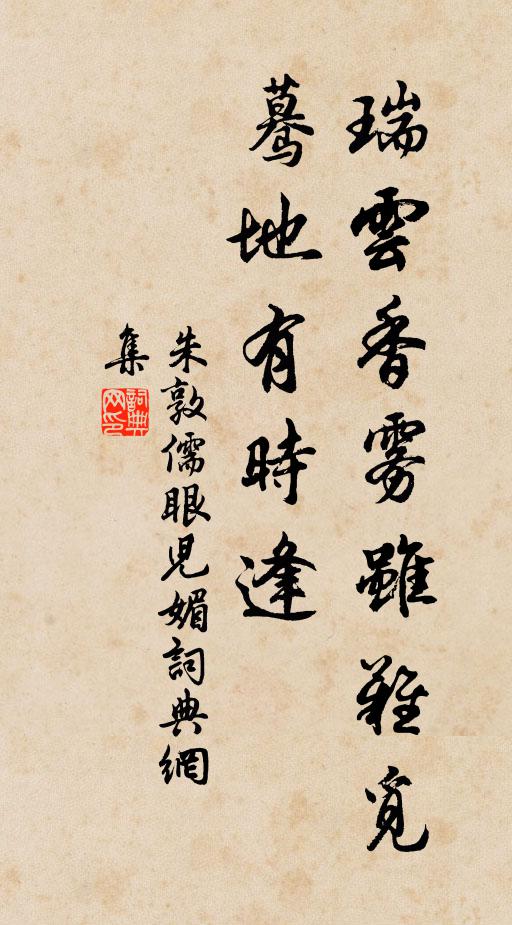 瑞雲香雾雖難覓
驀地有時逢
朱敦儒眼児媚詞典網
集
詞典网印